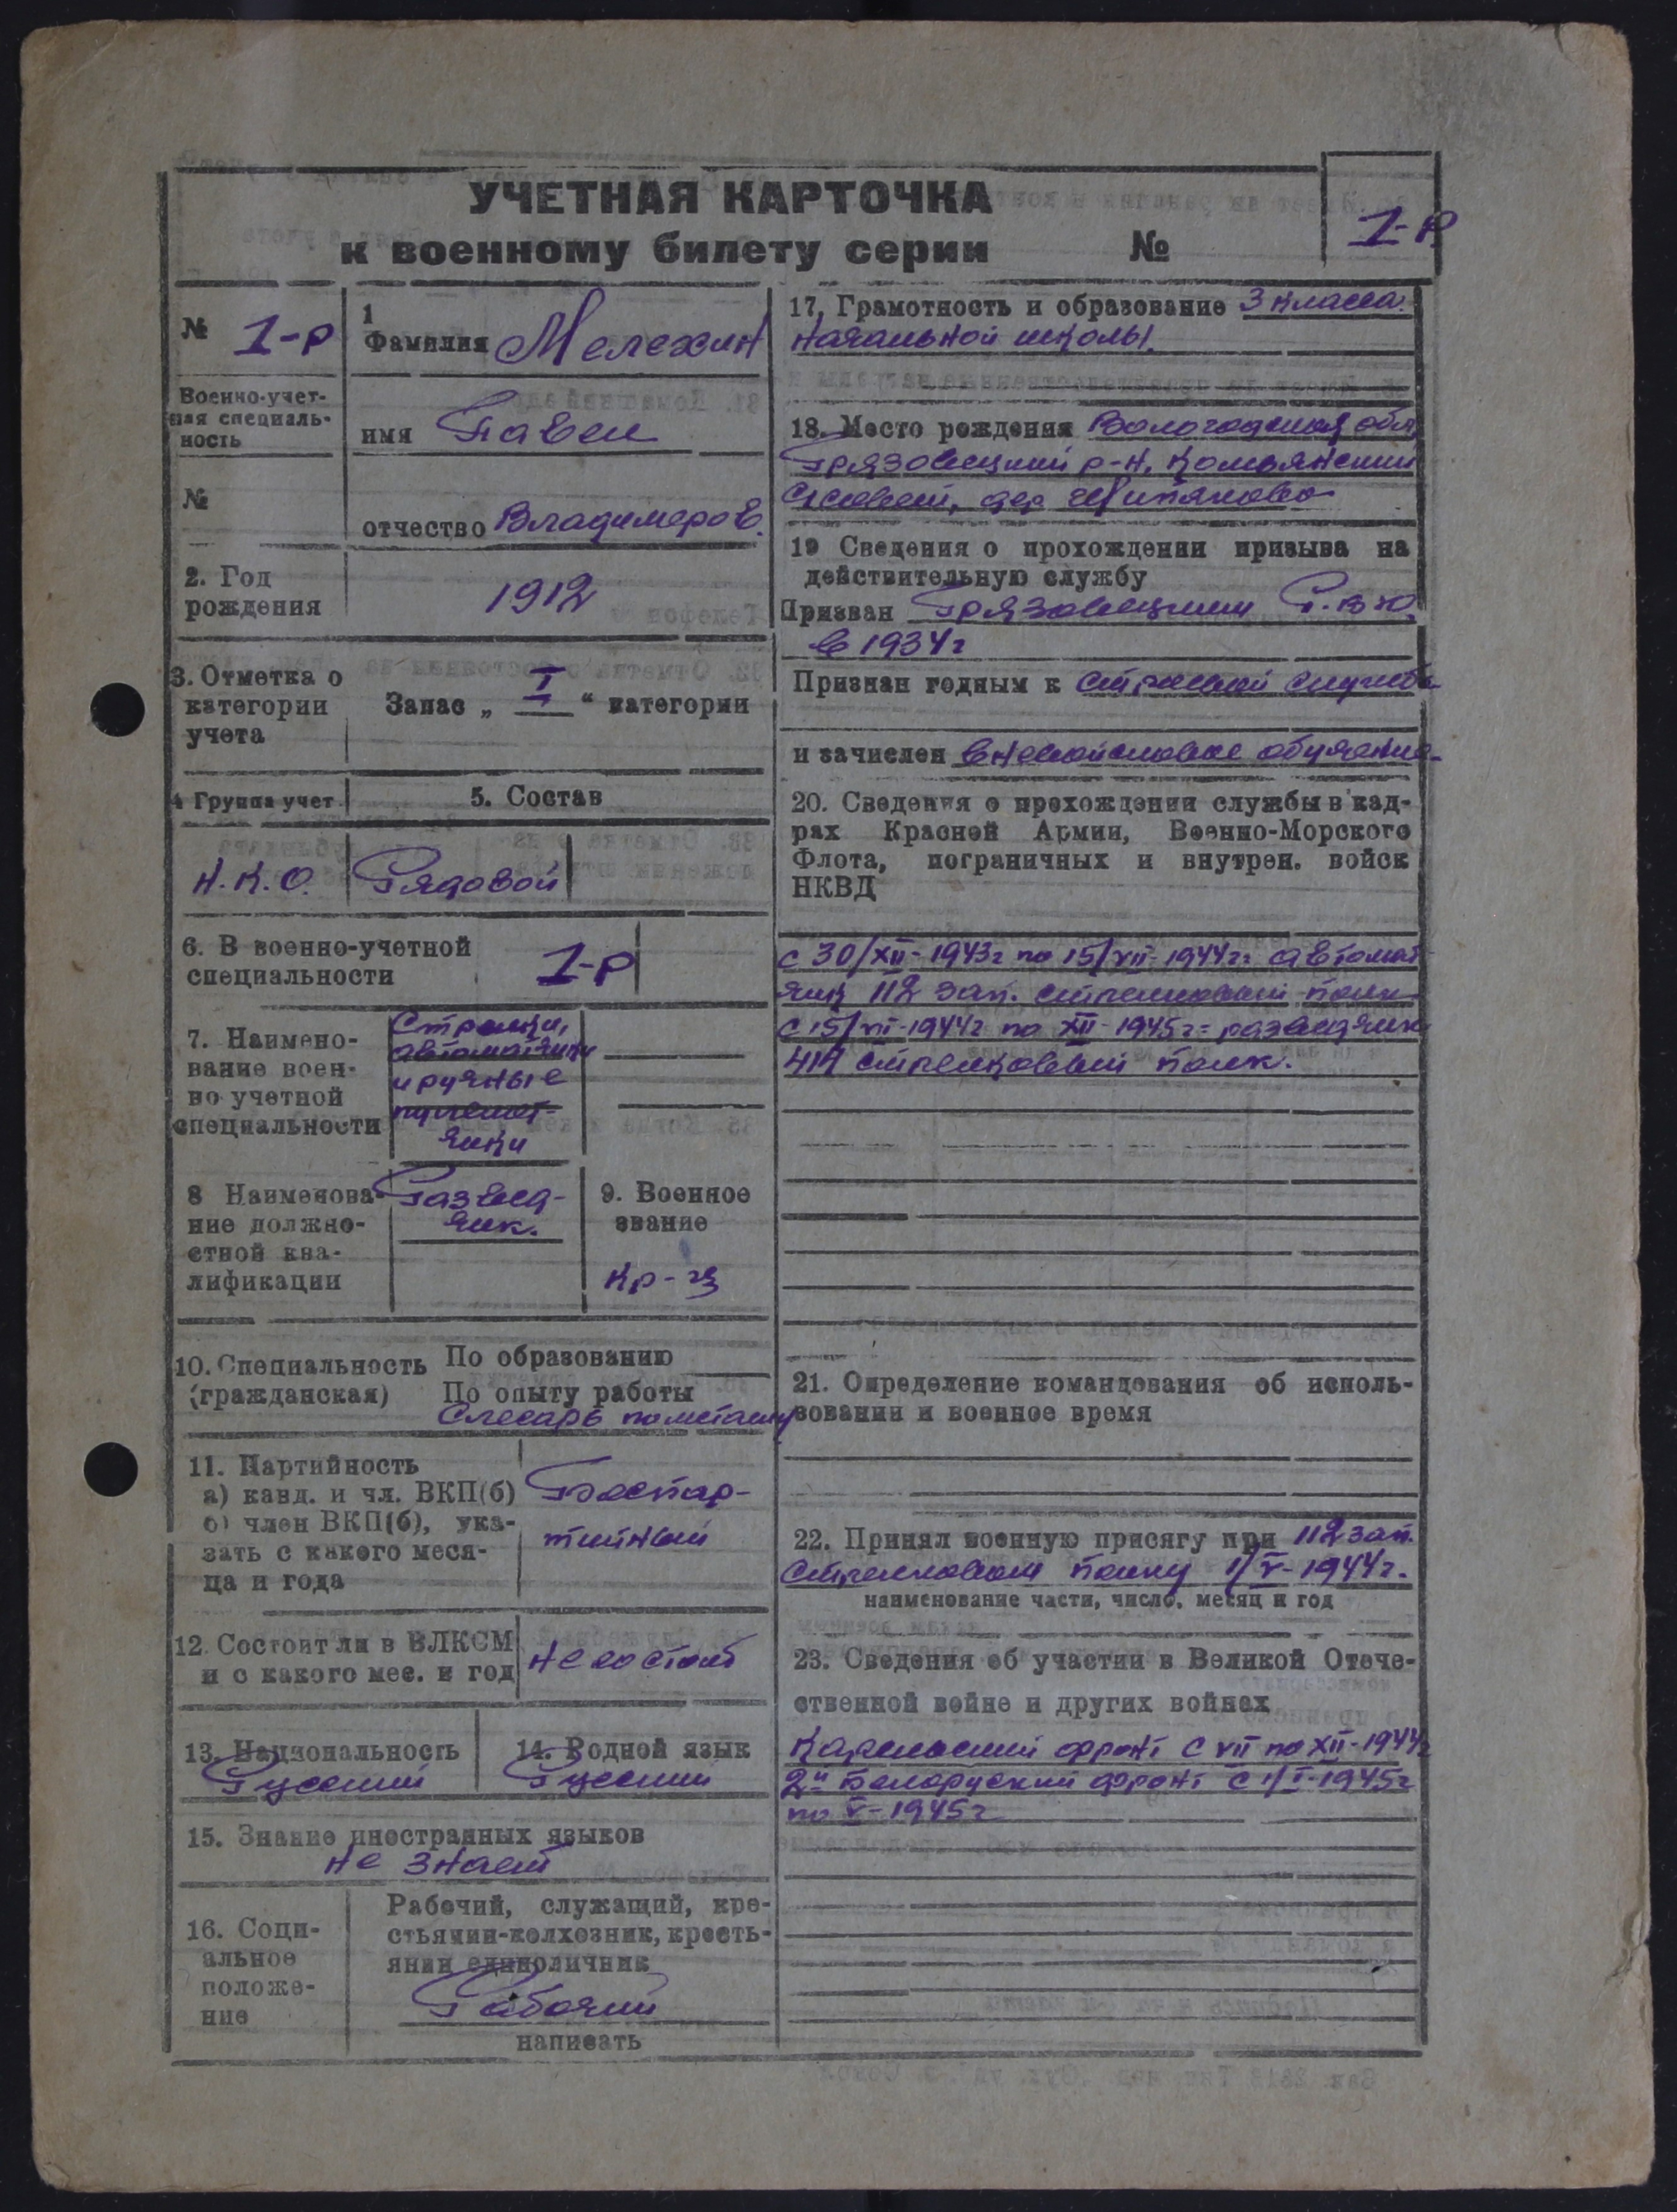 УЧЕТНАЯ КАРТОЧКА
к военному билету серии №
1-р
№ 1-р
Военно-учет-
ная специаль-
ность
№
1
Фамилия Мелехин
имя Павел
отчество Владимеров.
2. Год
рождения
1912
3. Отметка о
категории
учета
Запас „ I “ категории
4 Группа учет
5. Состав
Н.К.О.
Рядовой
6. В военно-учетной
специальности
1-р
7. Наимено-
вание воен-
но учетной
специальности
Стрелки,
автоматчики
и ручные
пулемет-
чики
8 Наименова-
ние должно-
стной ква-
лификации
Развед-
чик.
9. Военное
звание
Кр-ц
10. Специальность
(гражданская)
По образованию
По опыту работы
Слесарь по металу
11. Партийность
а) канд. и чл. ВКП(б)
б) член ВКП(б), ука-
зать с какого меся-
ца и года
Беспар-
тийный
12. Состоит ли в ВЛКСМ
и с какого мес. и год
не состоит
13. Национальность
Русский
14. Родной язык
Русский
15. Знание иностранных языков
не знает
16. Соци-
альное
положе-
ние
Рабочий, служащий, кре-
стьянин-колхозник, кресть-
янин единоличник
Рабочий
написать
17. Грамотность и образование 3 класса
начальной школы.
18. Место рождения Вологодская обл,
Грязовецкий р-н, Комьянский
с/совет, дер.
19 Сведения о прохождении призыва на
действительную службу
Призван Грязовецким Р.В.К.
в 1934г
Признан годным к строевой службе
и зачислен вневойсковое обучение
20. Сведения о прохождении службы в кад-
рах Красной Армии, Военно-Морского
Флота, пограничных и внутрен. войск
НКВД
с 30/XII-1943г по 15/VII-1944г: автомат
чик 112 зап. стрелковый полк
с 15/VII-1944г по XII-1945г = разведчик
414 стрелковый полк.
21. Определение командования об исполь-
зовании и военное время
22. Принял военную присягу при 112 зап.
стрелковом полку 1/V-1944г.
наименование части, число, месяц и год
23. Сведения об участии в Великой Отече-
ственной войне и других войнах
Карельский фронт с VII по XII-1944г
2й Белоруский фронт с 1/I-1945г
по V-1945г